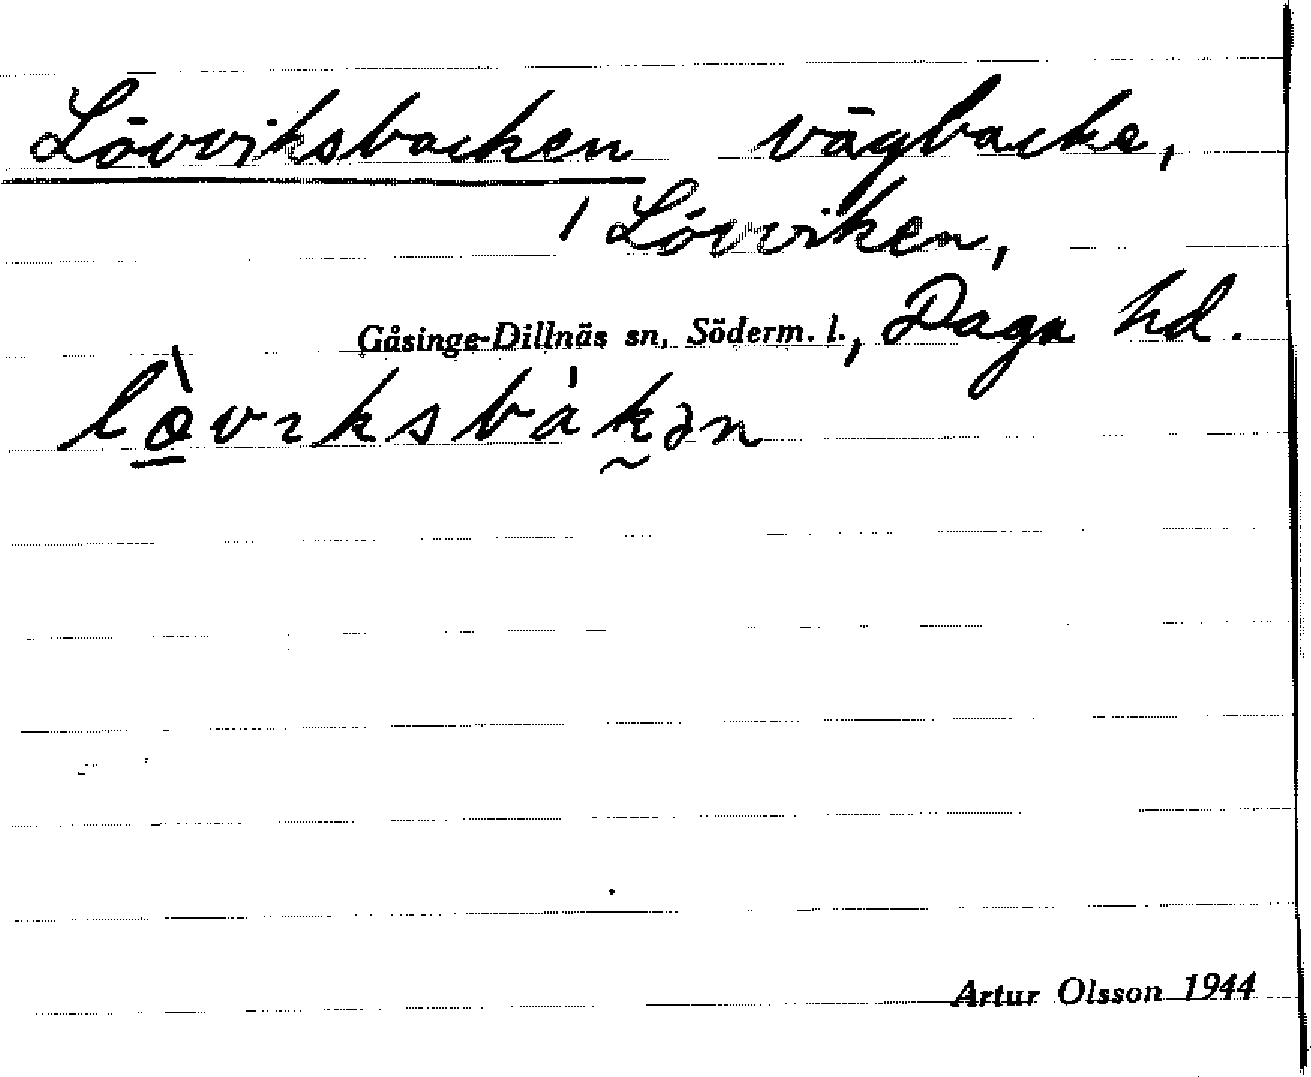 Lövviksbacken vägbacke,
i Lövviken,
Gåsinge-Dillnäs sn, Söderm. l., Daga hd.
lö̀vıksbák̰ən
Artur Olsson 1944